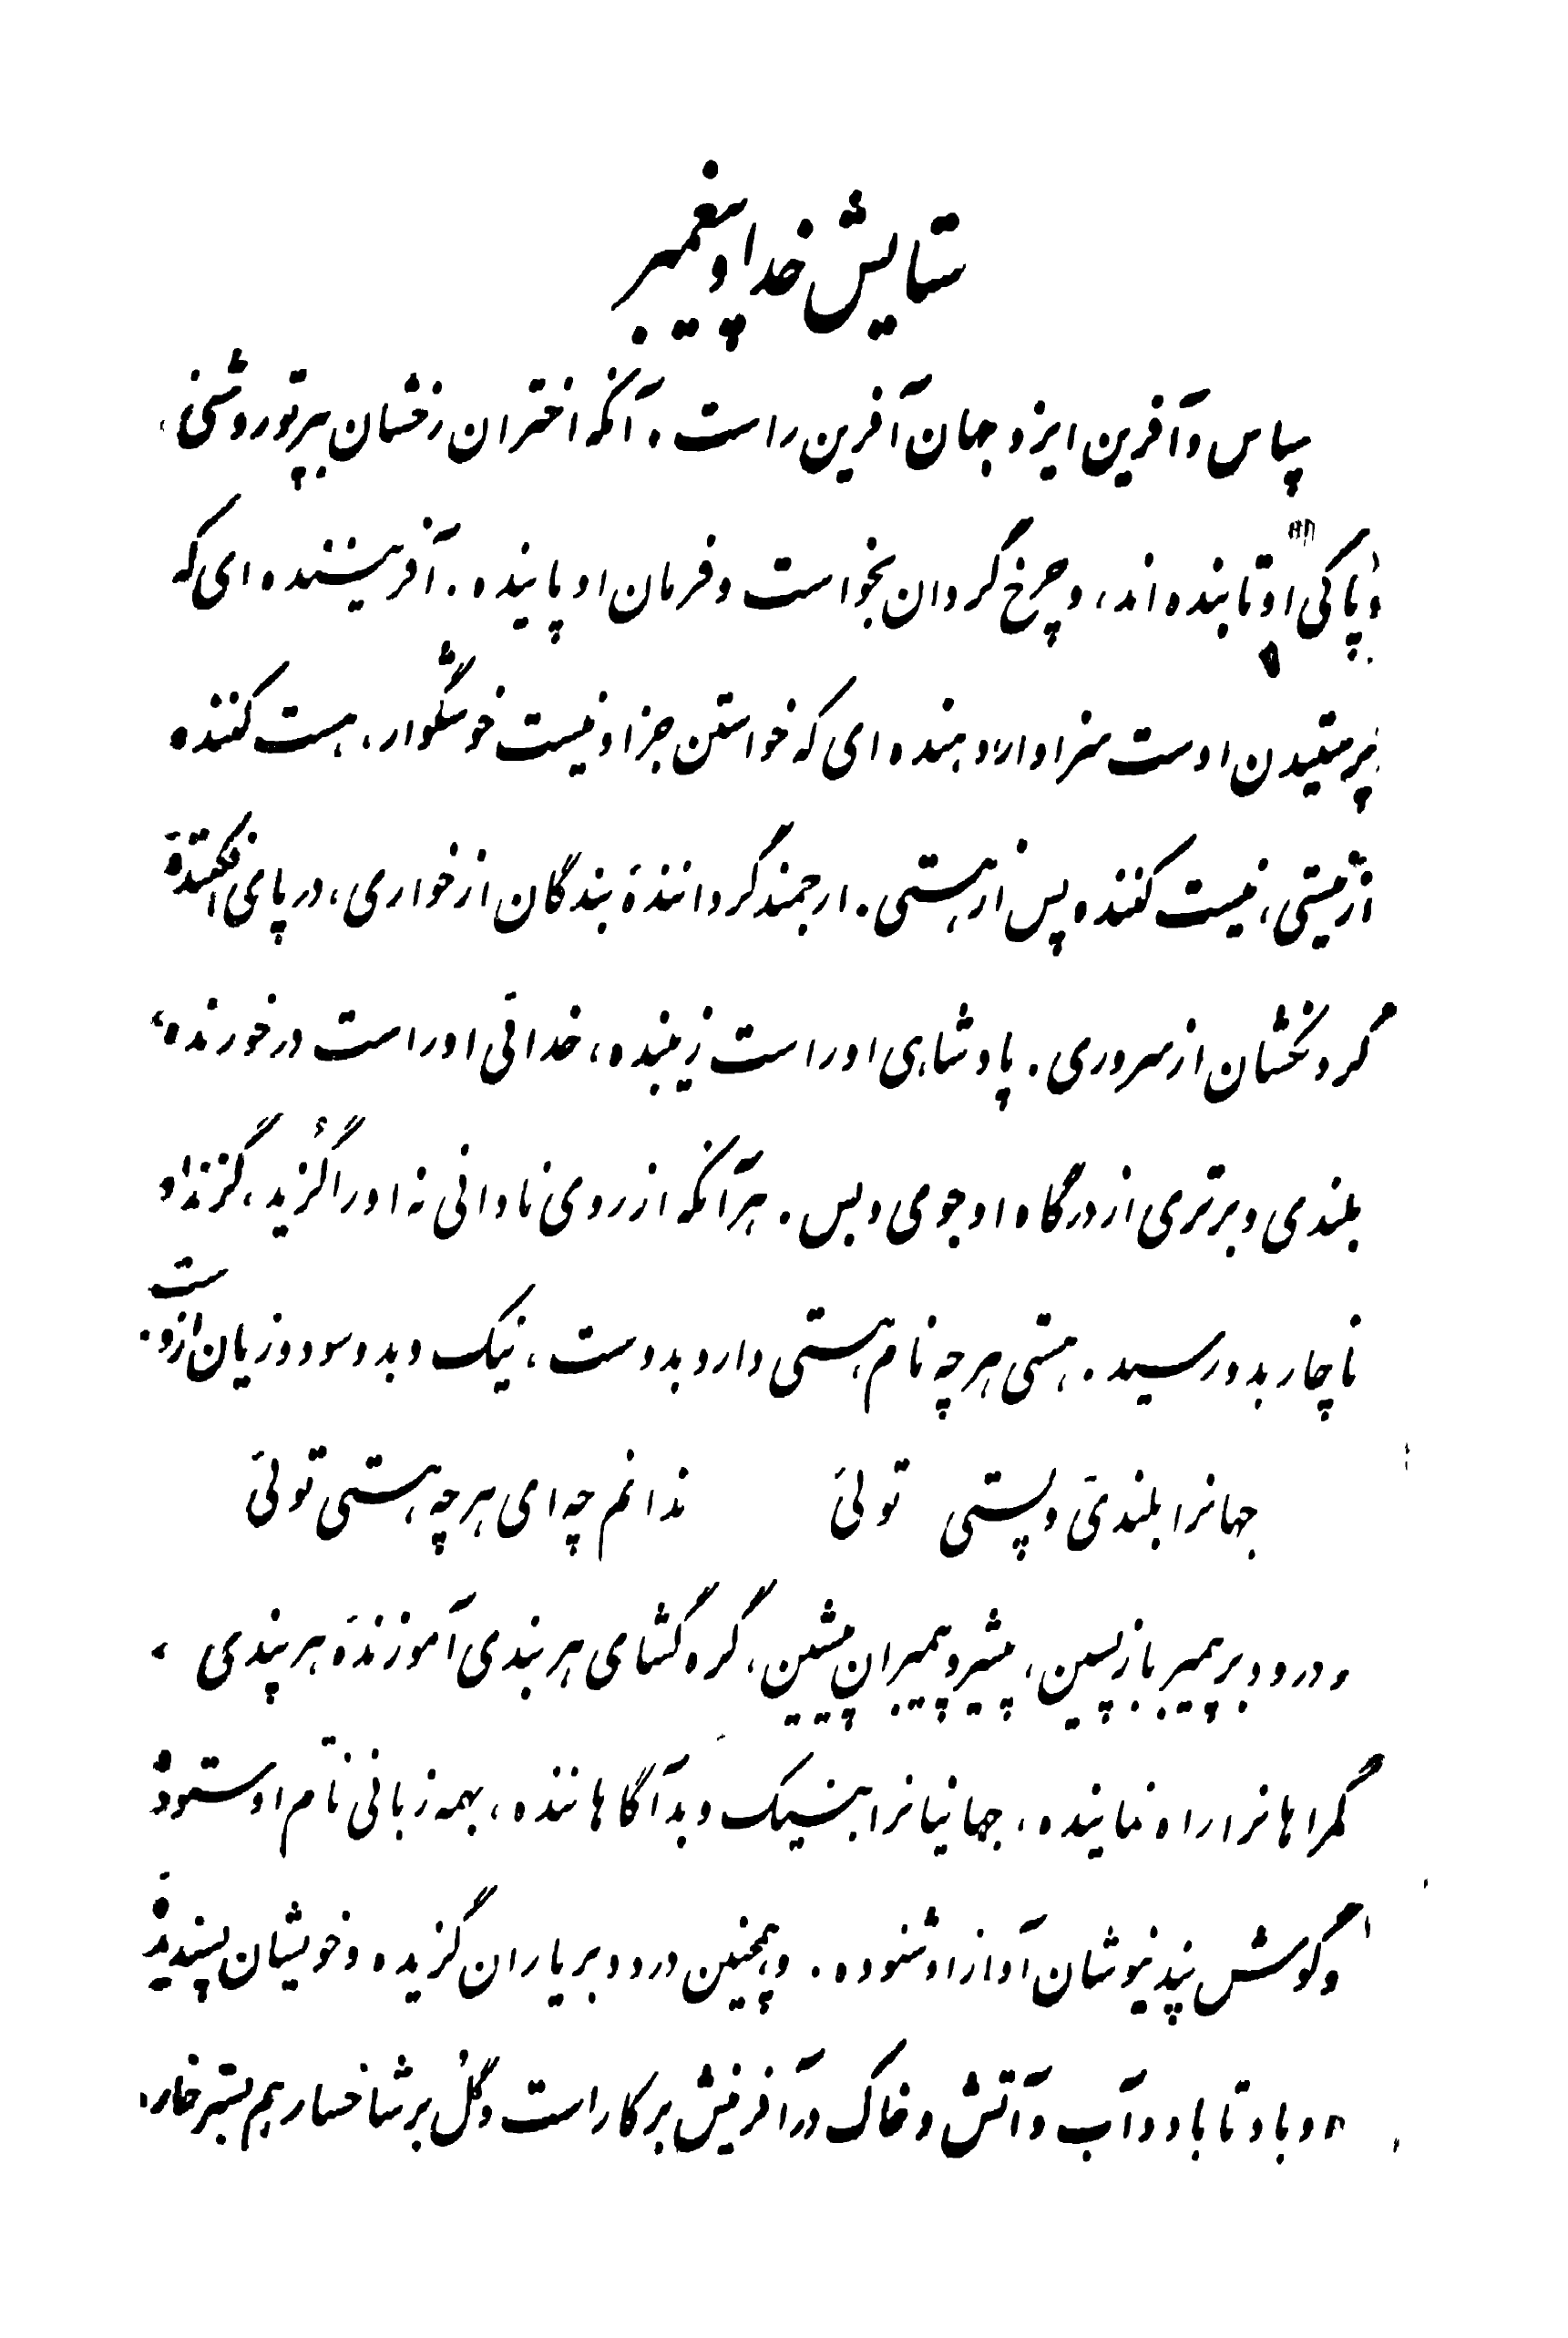 ستایش خدا و پیغمبر
سپاس و آفرین ایزد جهان آفرین راست. آنکه اختران رخشان بپرتو روشنی
و پاکی او تابنده اند، و چرخ گردان بخواست و فرمان او پاینده. آفریننده ای که
پرستیدن اوست سزاوار، دهنده ای که خواستن جز از او نیست خوشگوار، هست کننده
از نیستی، نیست کننده پس از هستی. ارجمند گردانندهٔ بندگان از خواری، در پای افکنندهٔ
گردنکشان از سروری. پادشاهی او راست زیبنده، خدائی او راست درخورنده،
بلندی و برتری از درگاه او جوی و بس. هر آنکه از روی نادانی نه او را گزید، گزند او
ناچار بدو رسید. هستی هر چه نام هستی دارد بدوست، نیک و بد و سود و زیان ازوست.
جهانرا بلندی و پستی توئی ندانم چه ای هر چه هستی توئی
و درود بر پیمبر بازپسین، پیشرو پیمبران پیشین، گره گشای هر بندی آموزندهٔ هر پندی،
گمراهانرا راه نماینده، جهانیانرا بنیک و بد آگاهاننده، بهمه زبانی نام او ستوده
و گوش پند نیوشان آواز او شنوده. و همچنین درود بر یاران گزیده و خویشان پسندیدهٔ
او باد تا باد و آب و آتش و خاک در آفرینش بر کار است و گل بر شاخسار هم بستر خار.